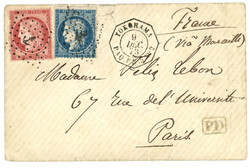 YOKOHAMA
9
DEC
73
France
(via Marseille)
Madame Felix Lebon
67 rue de l'Université
Paris
PD